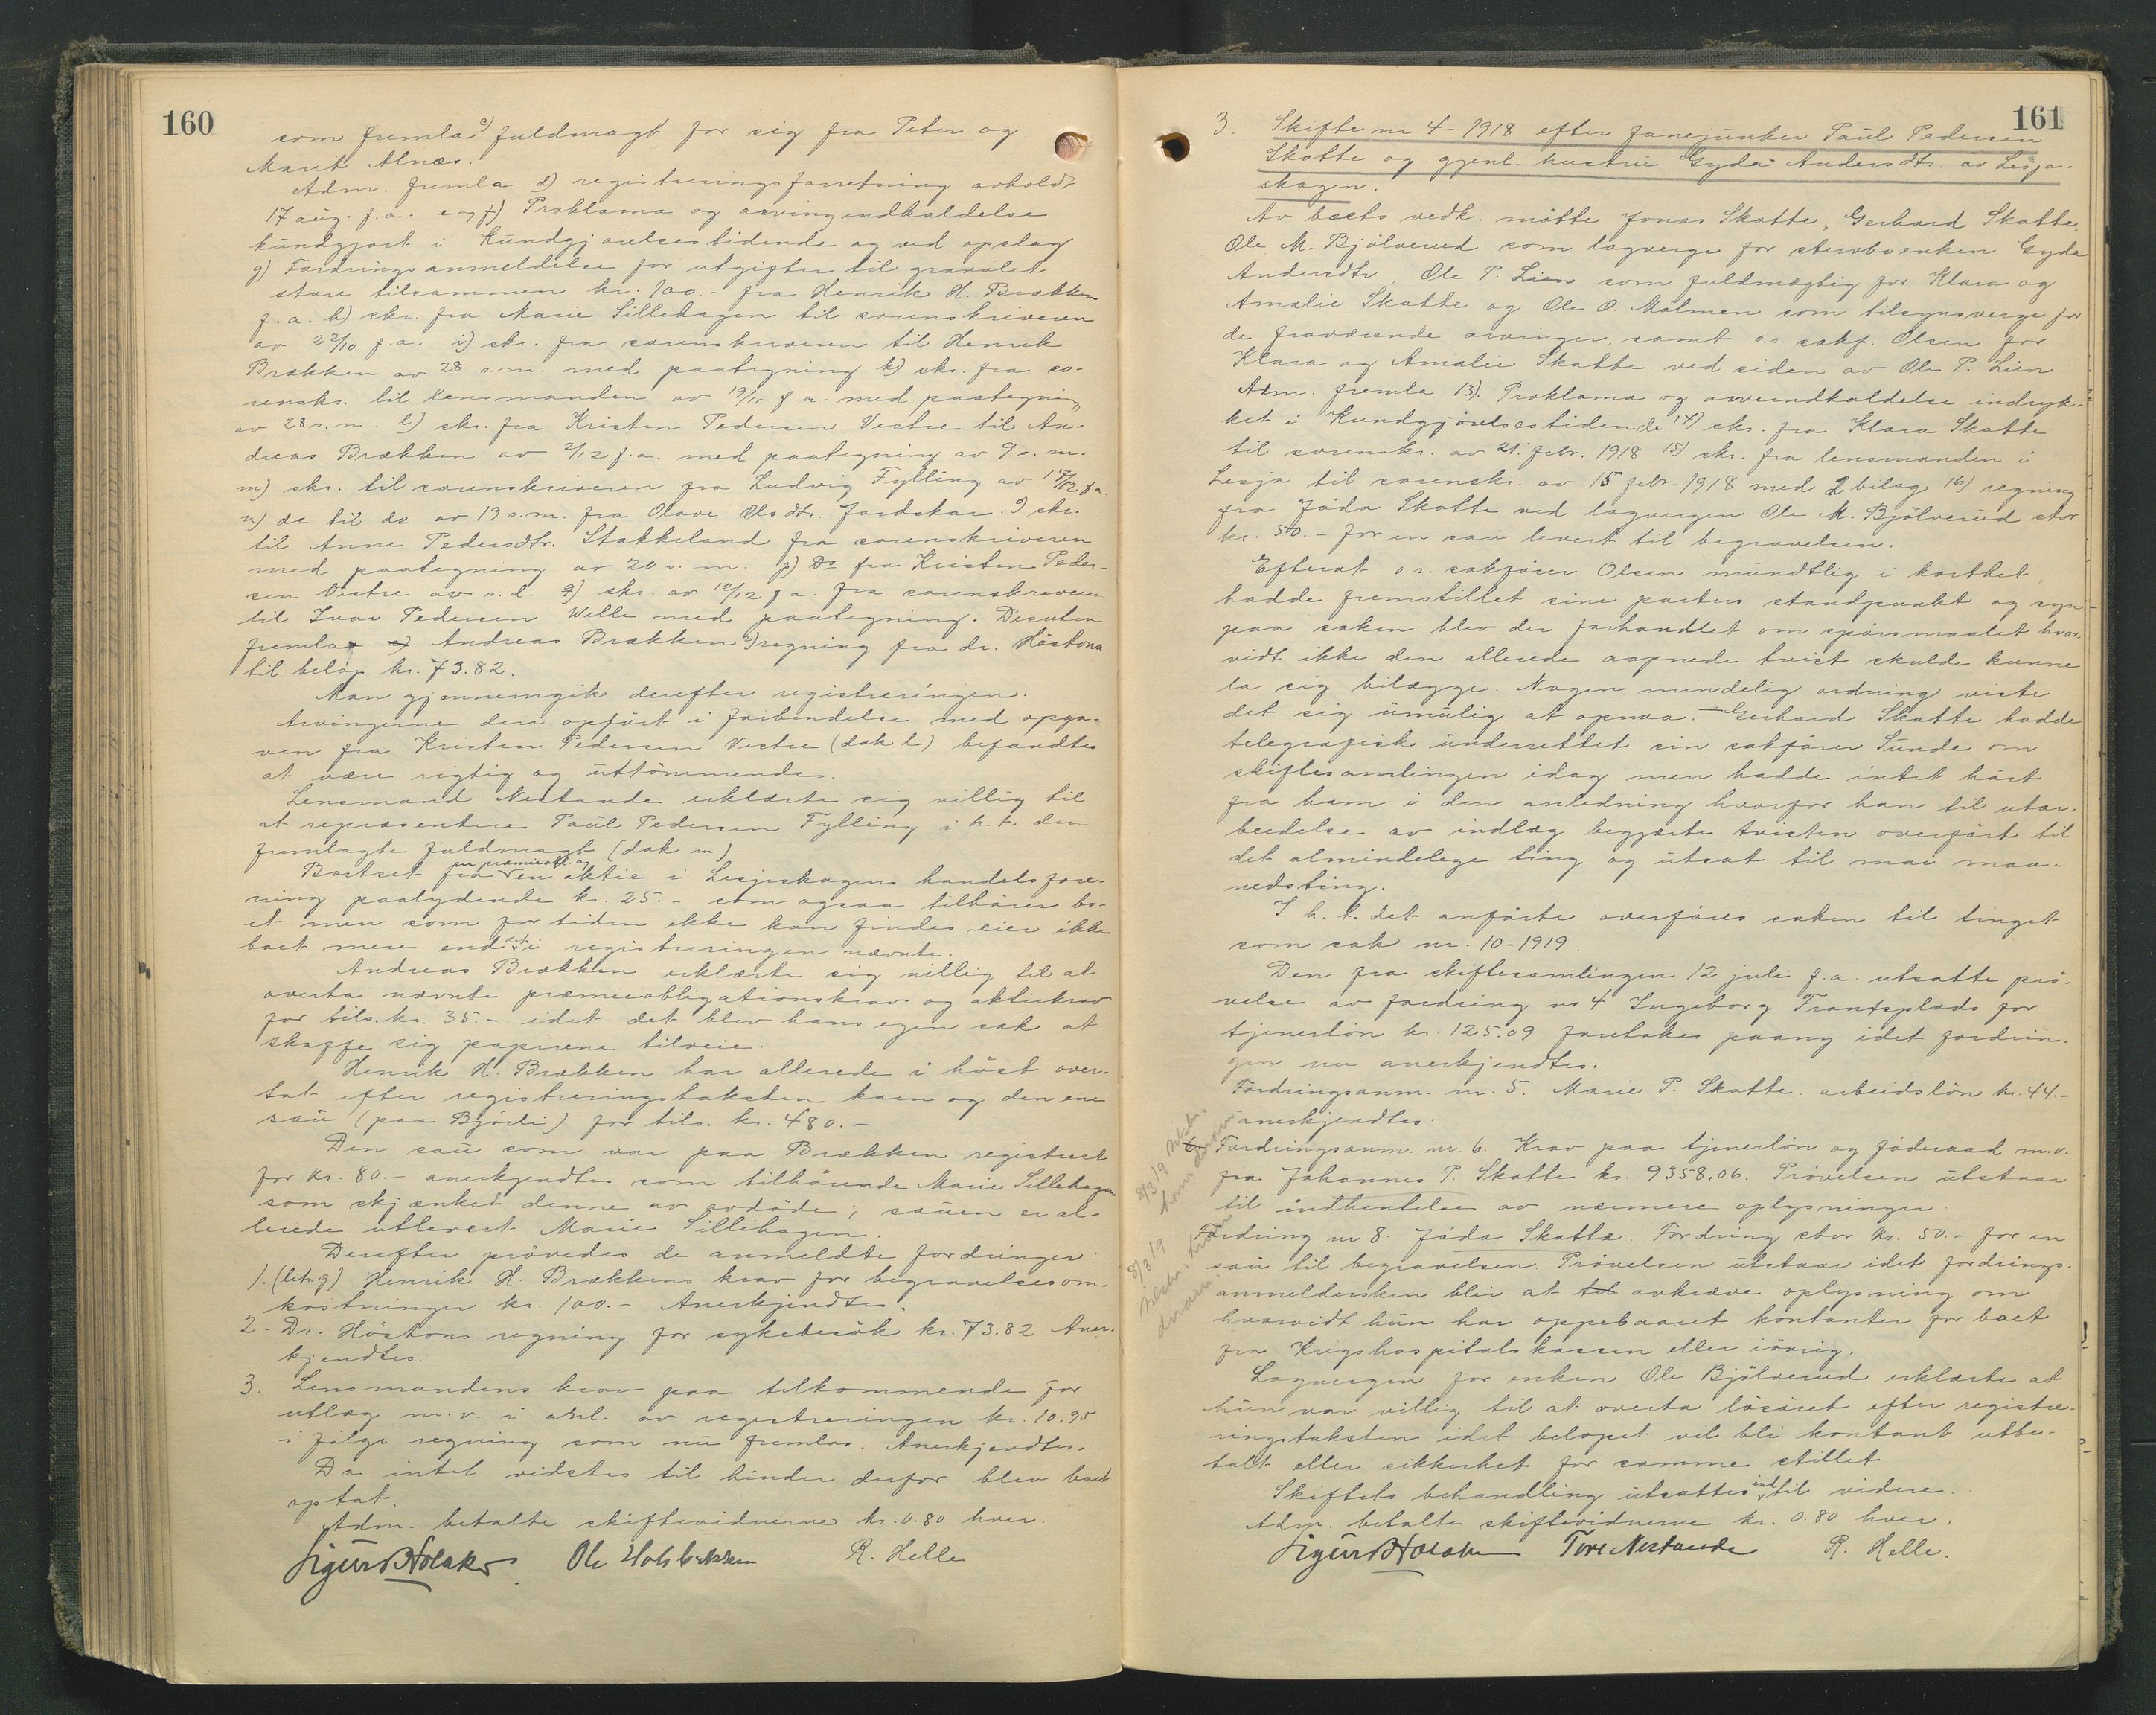 160
som fremla c) fuldmagt for sig fra Peter og
Marit Alnæs.
Adm. fremla d) registreringsforretning avholdt
17 aug. f.a. e og f) Proklama og arvingindkaldelse
kundgjort i Kundgjörelsestidende og ved opslag
g) Fordringsanmeldelse for utgifter til gravölet
store tilsammen kr. 100.- fra Henrik H. Brækken
f.a. h) skr. fra Marie Sillehagen til sorenskriveren
av 22/10 f.a. i) skr. fra sorenskriveren til Henrik
Brækken av 28. s.m. med paategning k) skr. fra so-
renskr. til lensmanden av 19/11 f.a. med paategning
av 28 s.m. l) skr. fra Kristen Pedersen Vestre til An-
dreas Brækken av 2/12 f.a. med paategning av 9 s.m.
m) skr. til sorenskriveren fra Ludvig Fylling av 17/12 f.a.
n) do til do av 19 s.m. fra Olave Olsdtr. Jordskar. o) skr.
til Anne Pedersdtr. Stakkeland fra sorenskriveren
med paategning av 20 s.m. p) Do fra Kristen Peder-
sen Vestre av s.d. q) skr. av 10/12 f.a. fra sorenskriveren
til Ivar Pedersen Welle med paategning. Desuten
fremla Andreas Brækken r) regning fra dr. Höstons
til beløp kr. 73.82.
Man gjennemgik derefter registreringen.
Arvingerne der opfört i forbindelse med opga-
ven fra Kristen Pedersen Vestre (dok l) befandtes
at være rigtig og uttömmende.
Lensmand Nestande erklærte sig villig til
at repræsentere Paul Pedersen Fylling i h.t. den
fremlagte fuldmagt (dok m)
en præmieobl. og
Bortset fra en aktie i Lesjeskogens handelsfore-
ning paalydende kr. 25.- som ogsaa tilhörer bo-
et men som for tiden ikke kan findes eier ikke
boet mere end det i registreringen nævnte.
Andreas Brækken erklærte sig villig til at
overta nævnte præmieobligationskrav og aktiekrav
for tils. kr. 35.- idet det blev hans egen sak at
skaffe sig papirene tilveie.
Henrik H. Brækken har allerede i höst over-
tat efter registreringstaksten kuen og den ene
sau (paa Bjorli) for tils. kr. 480.-
Den sau som var paa Brækken registrert
for kr. 80.- anerkjendtes som tilhörende Marie Sillehagen
som skjænket denne av avdöde; sauen er al-
lerede utlevert Marie Sillihagen.
Derefter prövedes de anmeldte fordringer:
1. (litr. g) Henrik H. Brækkens krav for begravelsesom-
kostninger kr. 100.- Anerkjendtes.
2. Dr. Höstons regning for sykebesök kr. 73.82 Aner-
kjendtes.
3. Lensmandens krav paa tilkommende for
utlæg m.v. i anl. av registreringen kr. 10.95
i fölge regning som nu fremlas. Anerkjendtes.
Da intet vidstes til hinder derfor blev boet
optat.
Adm. betalte skiftevidnerne kr. 0.80 hver.
Sigurd Holaker Ole Holsbrækken R. Helle
161
3. Skifte nr 4-1918 efter fanejunker Paul Pedersen
Skotte og gjenl. hustru Gyda Andersdtr. av Lesja-
skogen.
Av boets vedk. mötte Jonas Skotte, Gerhard Skotte,
Ole M. Bjölverud som lagverge for stervboenken Gyda
Andersdtr., Ole P. Lien som fuldmægtig for Klara og
Amalie Skotte og Ole O. Mölmen som tilsynsverge for
de fraværende arvinger, samt o.r. sakf. Olsen for
Klara og Amalie Skotte ved siden av Ole P. Lien
Adm. fremla 13). Proklama og arveindkaldelse indryk-
ket i Kundgjörelsestidende 14) skr. fra Klara Skotte
til sorenskr. av 21. febr. 1918 15) skr. fra lensmanden i
Lesja til sorenskr. av 15 febr. 1918 med 2 bilag 16) regning
fra Jóda Skotte ved lagvergen Ole M. Bjölverud stor
kr. 50.- for en sau levert til begravelsen.
Efterat o.r. sakförer Olsen mundtlig i korthet
hadde fremstillet sine parters standpunkt og syn
paa saken blev der forhandlet om spörsmaalet hvor-
vidt ikke den allerede aapnede tvist skulde kunne
la sig bilægge. Nogen mindelig ordning viste
det sig umulig at opnaa. - Gerhard Skotte hadde
telegrafisk underrettet sin sakförer Sunde om
skiftesamlingen idag men hadde intet hört
fra ham i den anledning hvorfor han til utar-
beidelse av indlæg begjærte tvisten overfört til
det almindelege ting og utsat til mai maa-
nedsting.
I h.t. det anförte overföres saken til tinget
som sak nr. 10-1919.
Den fra skiftesamlingen 12 juli f.a. utsatte prö-
velse av fordring no 4 Ingeborg Trandsplads for
tjenerlön kr. 125.09 foretakes paany idet fordrin-
gen nu anerkjendtes.
Fordringsanm. nr. 5. Marie P. Skotte arbeidslön kr. 44.-
anerkjendtes.
Fordringsanm. nr. 6. Krav paa tjenerlön og föderaad m.v.
fra Johannes P. Skotte kr. 9358.06. Prövelsen utstaar
til indhentelse av nærmere oplysninger.
Fordring nr 8. Jóda Skotte. Fordring stor kr. 50.- for en
sau til begravelsen. Prövelsen utstaar idet fordrings-
anmeldersken blir at avkræve oplysning om
hvorvidt hun har oppebaaret kontanter for boet
fra Krigshospitalskassen eller iövrig.
Lagvergen for enken Ole Bjölverud erklærte at
hun var villig til at overta lösöret efter registre-
ringstaksten idet belöpet vil bli kontant utbe-
talt eller sikkerhet for samme stillet.
Skiftets behandling utsattes indtil videre.
Adm. betalte skiftevidnerne kr. 0.80 hver.
Sigurd Holaker Tore Nestande R. Helle.
8/3 19
8/3 19